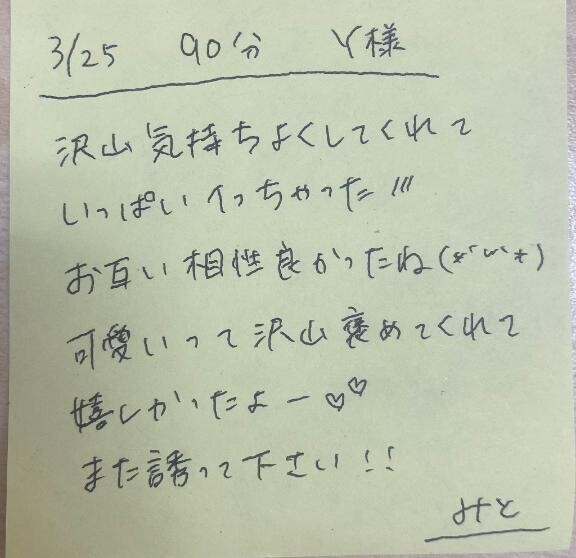 3/25 90分 Y様
沢山気持ちよくしてくれて
いっぱいイっちゃった!!!
お互い相性良かったね(*ˊᵕˋ*)
可愛いって沢山褒めてくれて
嬉しかったよー♡♡
また誘って下さい!!
みと